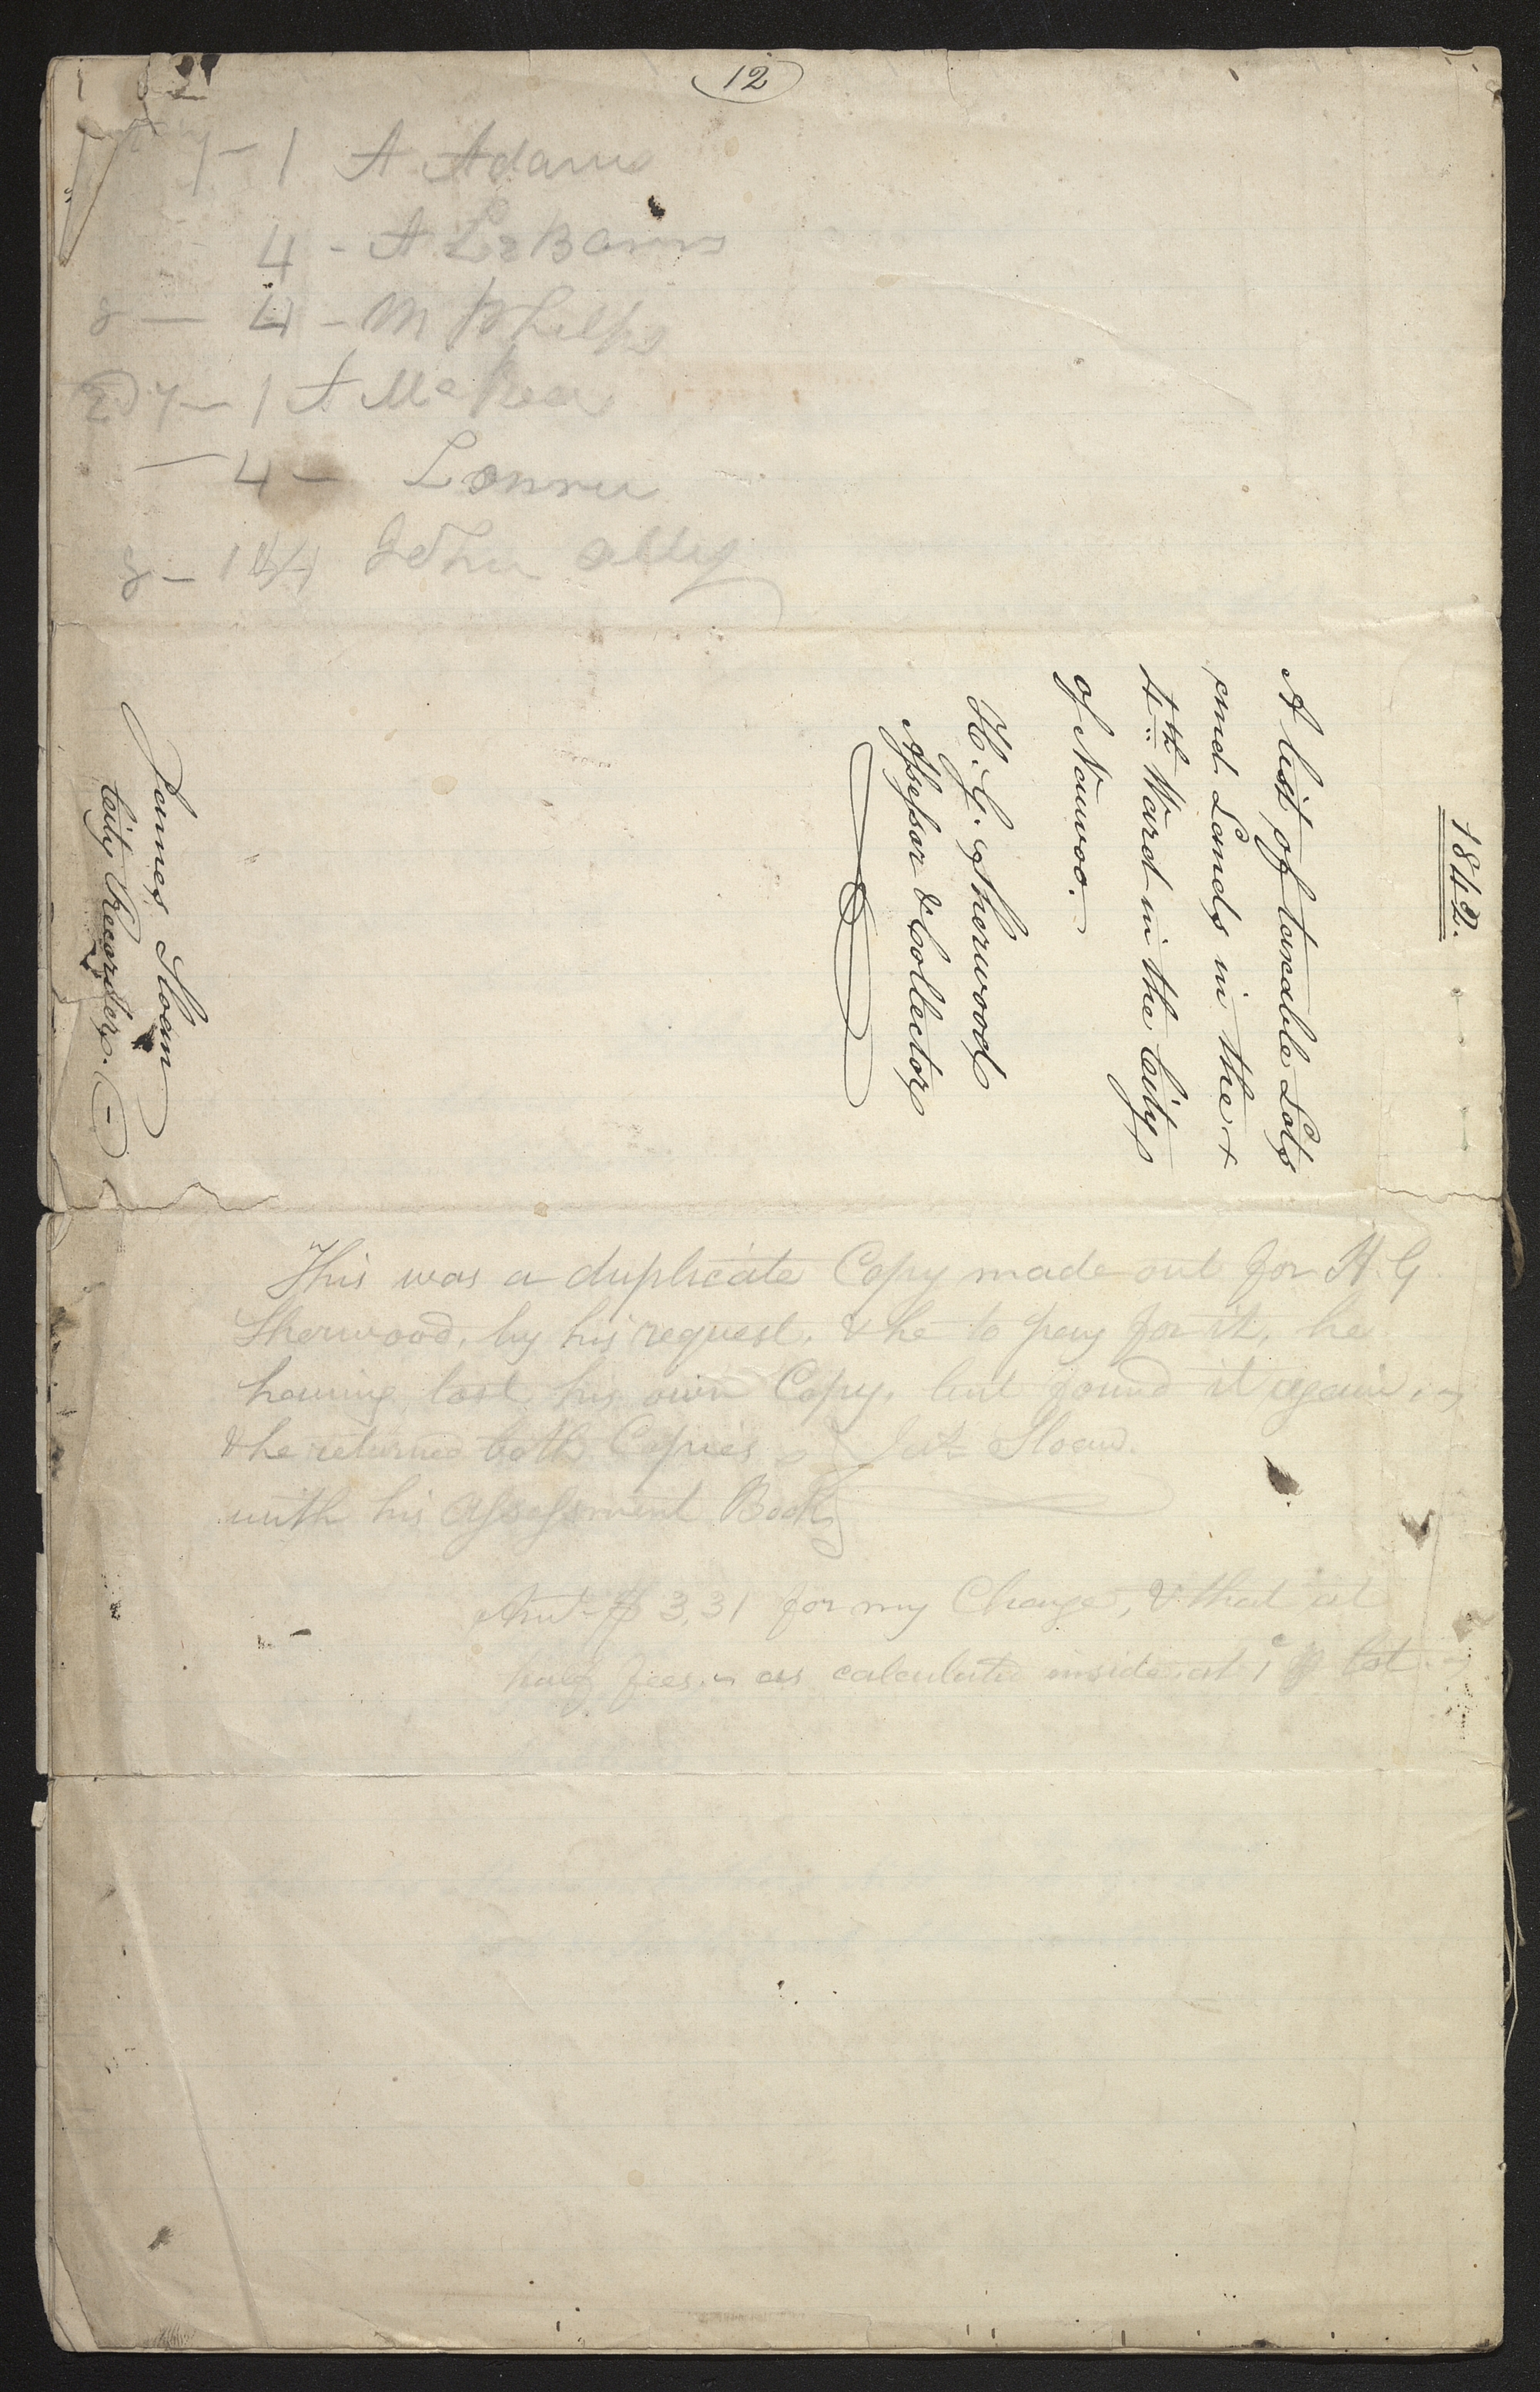 12
7 - 1 A Adams
4 - A LeBarrn
8 - 4 - M Phelps
7 - 1 A McRea
- 4 -
8 - 1 John
1842.
A list of taxable Lots
and Lands in the
4th Ward in the City
of Nauvoo.
H. G. Sherwood
Assessor & Collector
James Sloan
City Recorder.
This was a duplicate Copy made out for H. G
Sherwood, by his request, & he to pay for it, he
having lost his own Copy, but found it again,
& he returned both Copies Jas Sloan.
with his Assessment Book
Amt $3,31 for my Charge, & that at
half fees as calculated inside at 1c lot